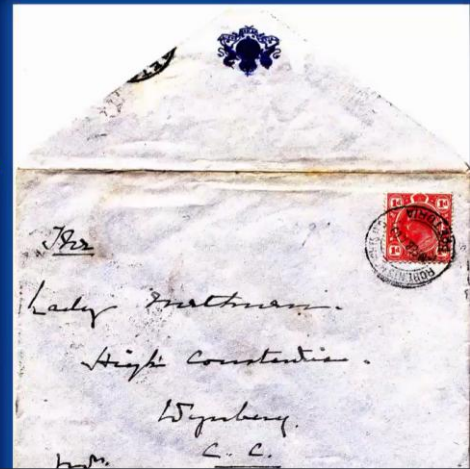 The
Lady Methuen.
High Constantia.
Wynberg.
C. C.
1d 1d
PRETORIA
ROBERTS H